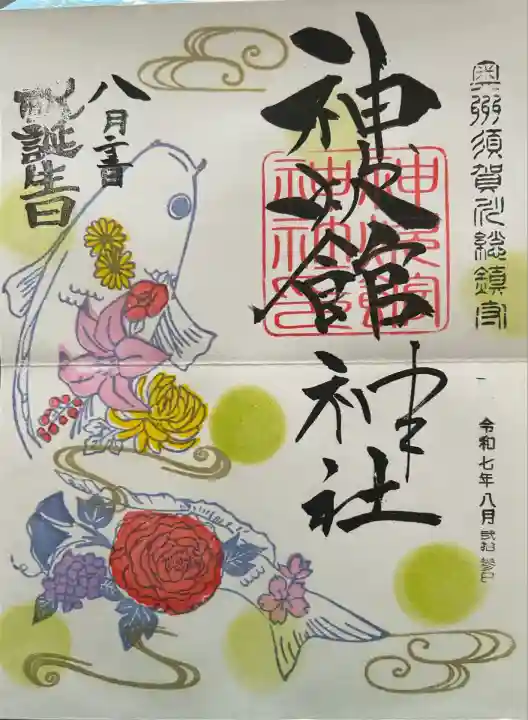 奥州須賀川総鎮守
神炊館神社
令和七年八月弐拾参日
八月二十三日
祝誕生日